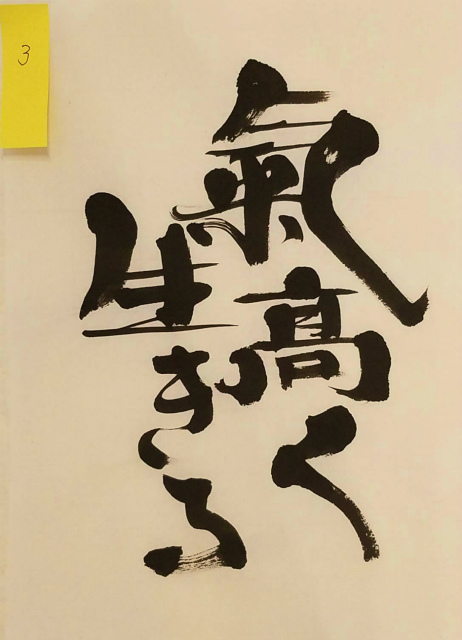 3
氣高く
生きる